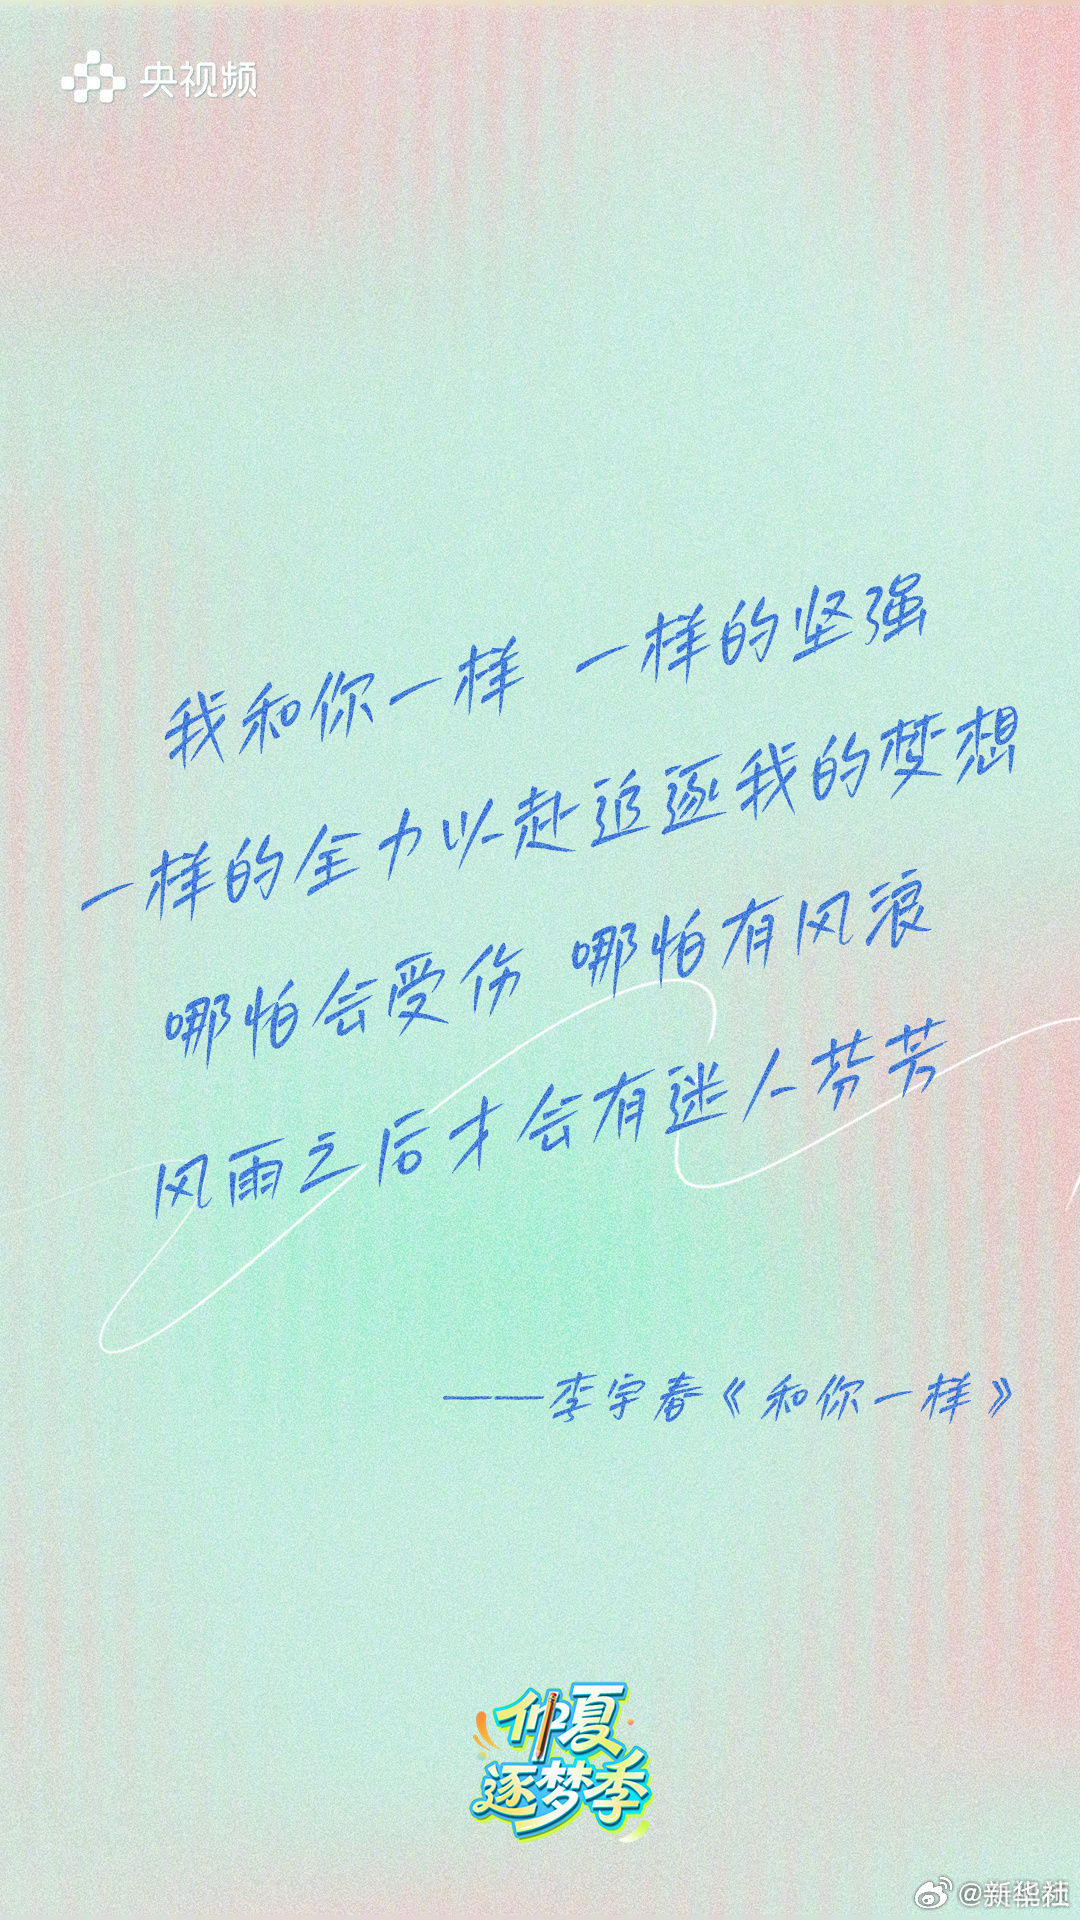 央视频
我和你一样 一样的坚强
一样的全力以赴追逐我的梦想
哪怕会受伤 哪怕有风浪
风雨之后才会有迷人芬芳
——李宇春《和你一样》
仲夏
逐梦季
@新华社